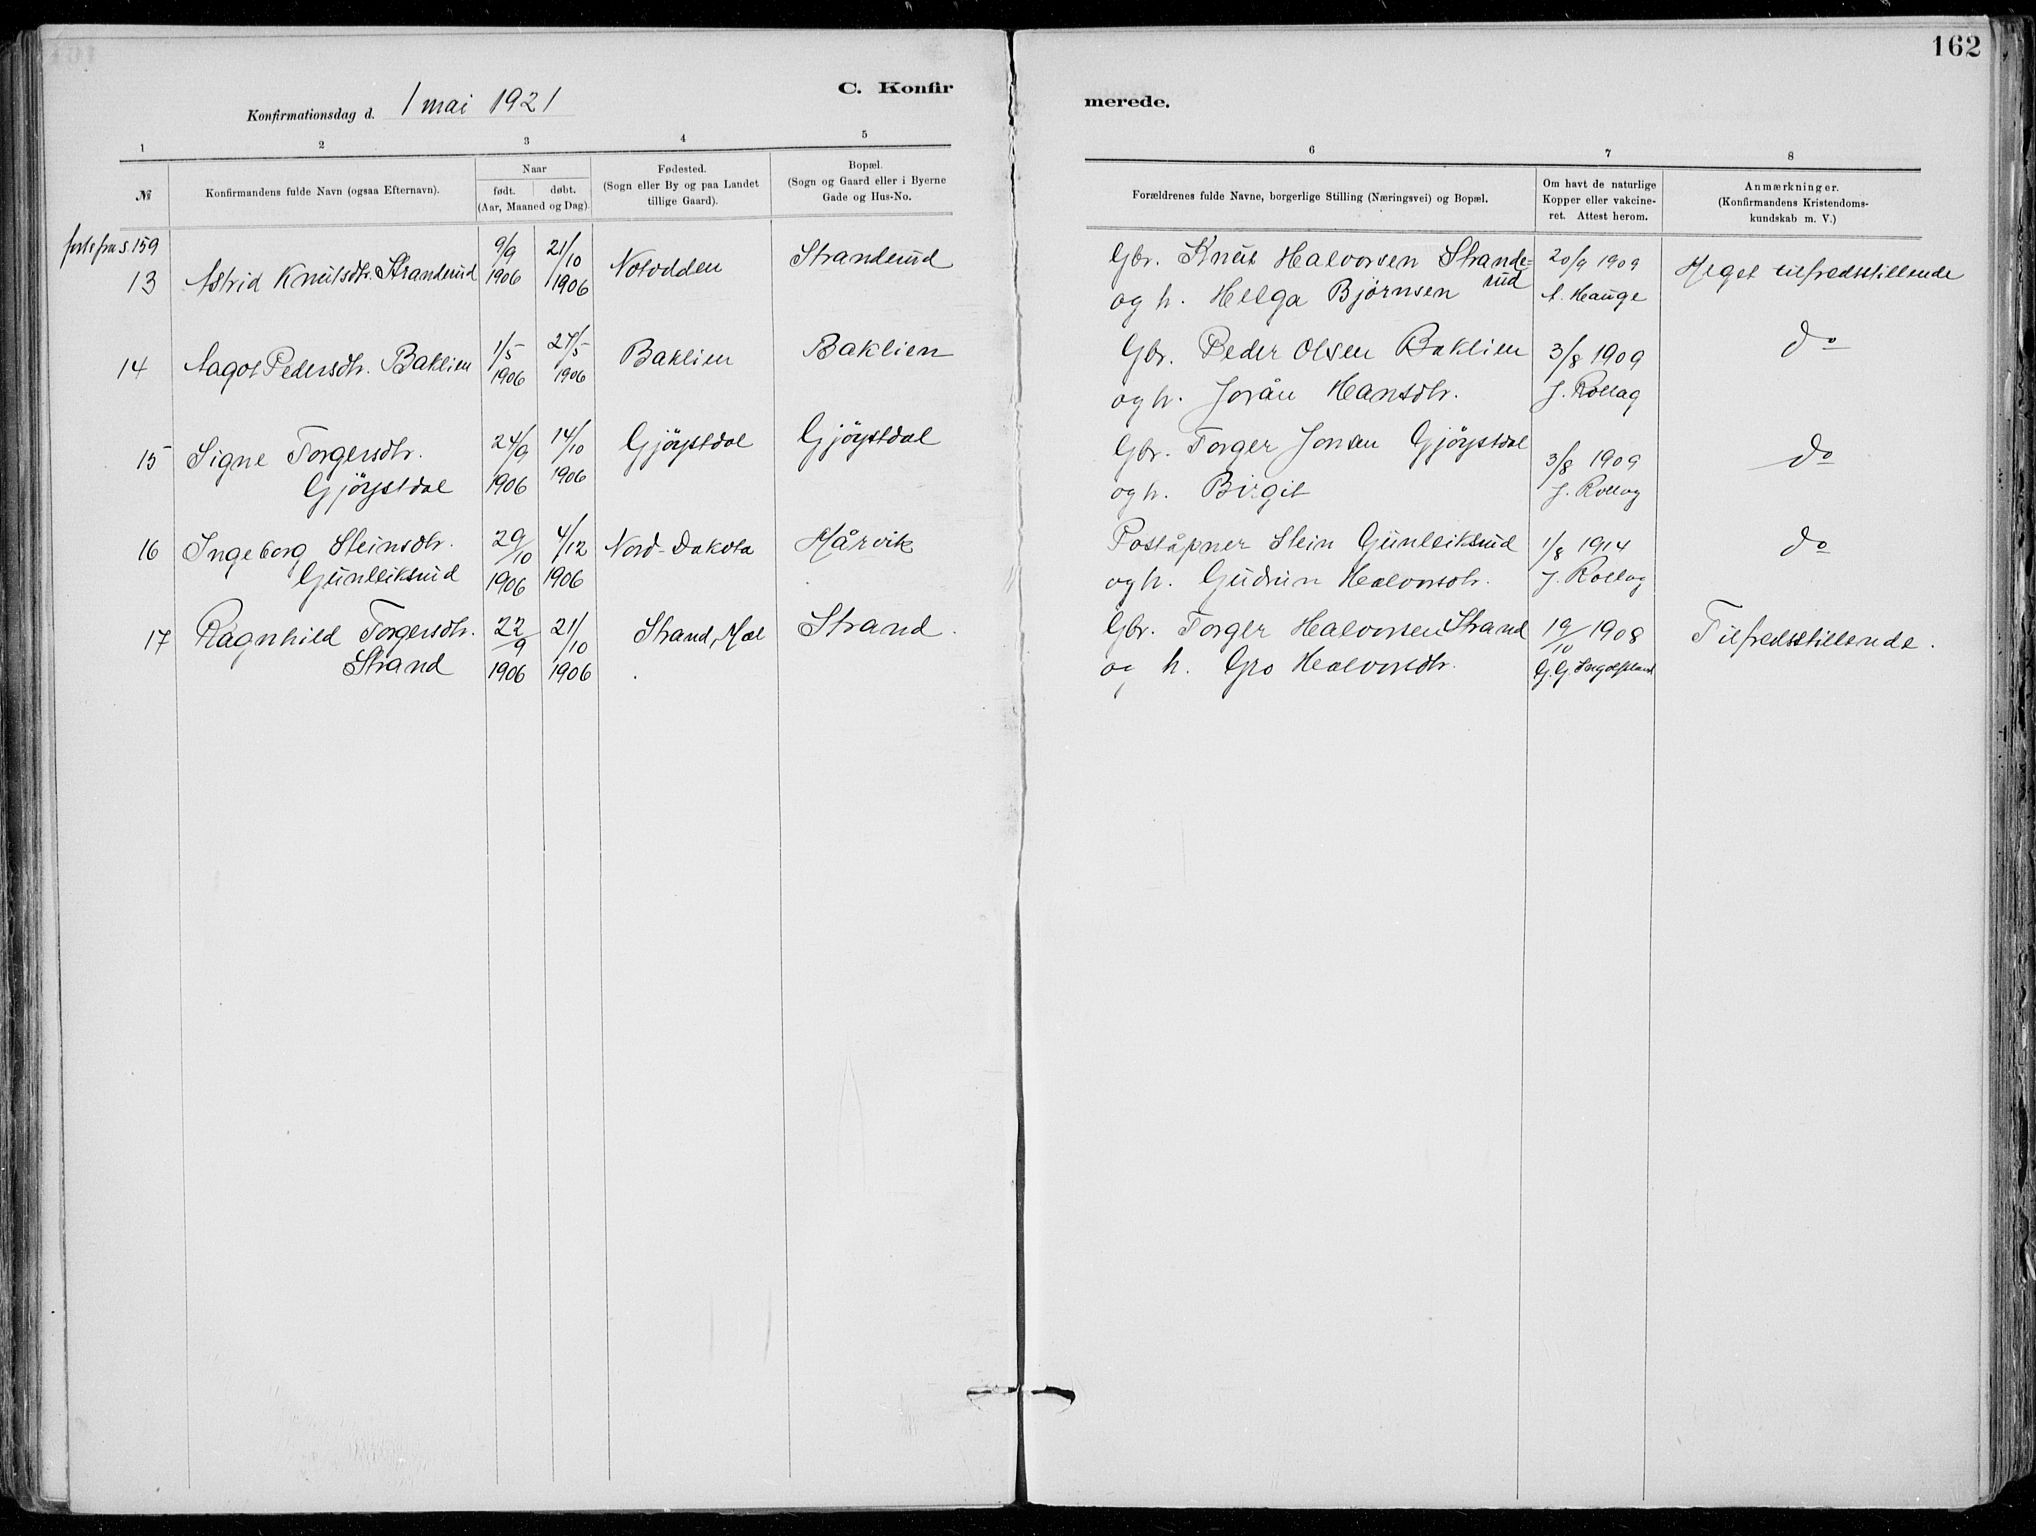 162
C. Konfirmerede.
Konfirmationsdag d. 1 mai 1921
1 2 3 4 5 6 7 8
№
Konfirmandens fulde Navn (ogsaa Efternavn).
Naar
født. døbt.
(Aar, Maaned og Dag).
Fødested.
(Sogn eller By og paa Landet
tillige Gaard).
Bopæl.
(Sogn og Gaard eller i Byerne
Gade og Hus-No.
Forældrenes fulde Navne, borgerlige Stilling (Næringsvei) og Bopæl.
Om havt de naturlige
Kopper eller vakcine-
ret. Attest herom.
Anmærkninger.
(Konfirmandens Kristendoms-
kundskab m. V.)
forts fra s. 159
13 Astrid Knutsdtr. Standerud 9/9 1906 21/10 1906 Notodden Standerud Gbr. Knut Halvorsen Strande-
rud
og h. Helga Bjørnsen 20/9 1909 A. Hauge Meget tilfredsstillende
14 Aagot Pedersdtr. Baklien 1/5 1906 27/5 1906 Baklien Baklien Gbr. Peder Olsen Baklien
og h. Jorån Hansdtr. 3/8 1909 J. Rollag do
15 Signe Torgersdtr.
Gjøystdal 24/9 1906 14/10 1906 Gjøystdal Gjøystdal Gbr. Torger Jonsen Gjøystdal
og h. Birgit 3/8 1909 J. Rollag do
16 Ingeborg Steinsdtr.
Gunleiksrud 29/10 1906 4/12 1906 Nord-Dakota Mårvik Poståpner Stein Gunleiksrud
og h. Gudrun Halvorsdtr. 1/8 1914 J. Rollag do
17 Ragnhild Torgersdtr.
Strand 22/9 1906 21/10 1906 Strand, Mæl Strand. Gbr. Torger Halvorsen Strand
og h. Gro Halvorsdtr. 19/10 1908 G. G. Ingolfsland Tilfredsstillende.